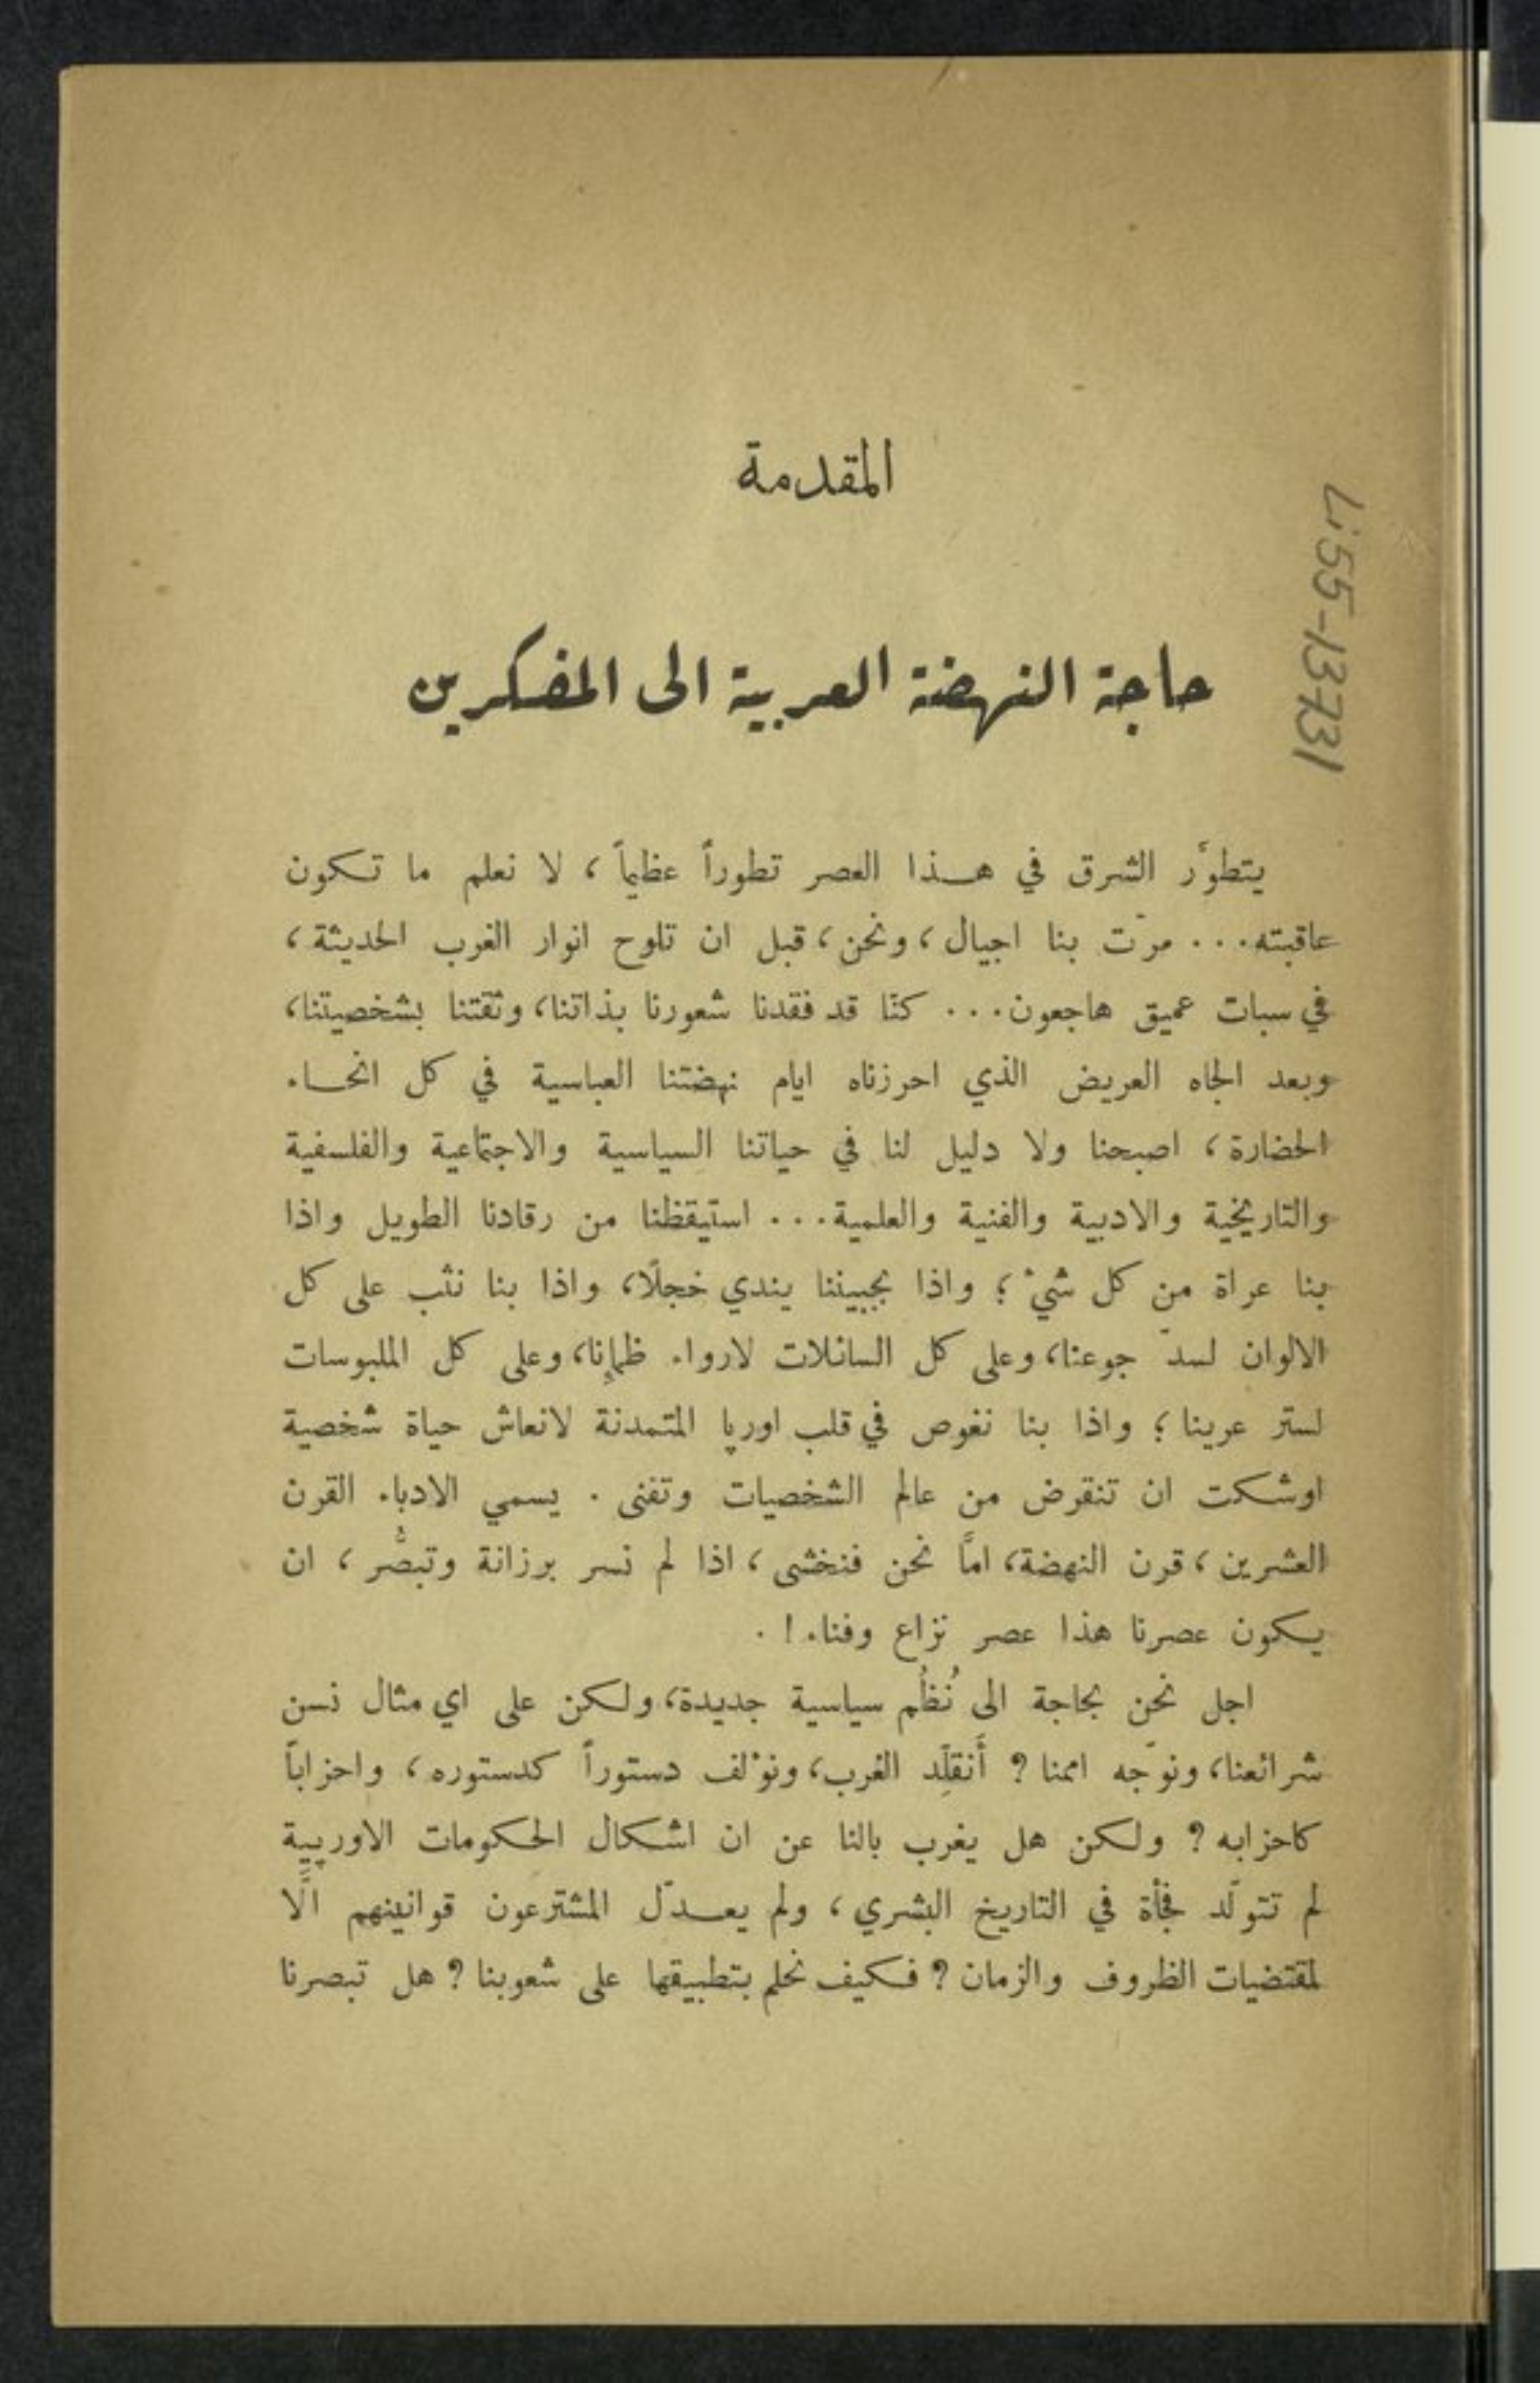 المقدمة
حاجة النهضة العربية الى المفكرين
يتطوَّر الشرق في هـذا العصر تطوراً عظيماً ، لا نعلم ما تكون
عاقبته... مرّت بنا اجيال ، ونحن ، قبل ان تلوح انوار الغرب الحديثة ،
في سبات عميق هاجعون... كنّا قد فقدنا شعورنا بذاتنا، وثقتنا بشخصيتنا،
وبعد الجاه العريض الذي احرزناه ايام نهضتنا العباسية في كل انحـاء
الحضارة ، اصبحنا ولا دليل لنا في حياتنا السياسية والاجتماعية والفلسفية
والتاريخية والادبية والفنية والعلمية... استيقظنا من رقادنا الطويل واذا
بنا عراة من كل شيْ ؛ واذا بجبيننا يندي خجلًا، واذا بنا نثب على كل
الالوان لسدّ جوعنا، وعلى كل السائلات لارواء ظمإنا، وعلى كل الملبوسات
لستر عرينا ؛ واذا بنا نغوص في قلب اوربا المتمدنة لانعاش حياة شخصية
اوشكت ان تنقرض من عالم الشخصيات وتفنى . يسمي الادباء القرن
العشرين ، قرن النهضة، امَّا نحن فنخشى ، اذا لم نسر برزانة وتبصُّر ، ان
يكون عصرنا هذا عصر نزاع وفناء ! .
اجل نحن بحاجة الى نُظُم سياسية جديدة، ولكن على اي مثال نسن
شرائعنا، ونوجّه اممنا ? أَنقلِّد الغرب، ونوْلف دستوراً كدستوره ، واحزاباً
كاحزابه ? ولكن هل يغرب بالنا عن ان اشكال الحكومات الاوربية
لم تتولّد فجأة في التاريخ البشري ، ولم يعـدّل المشترعون قوانينهم الَّا
لمقتضيات الظروف والزمان ? فكيف نحلم بتطبيقها على شعوبنا ? هل تبصرنا
L:55-13731